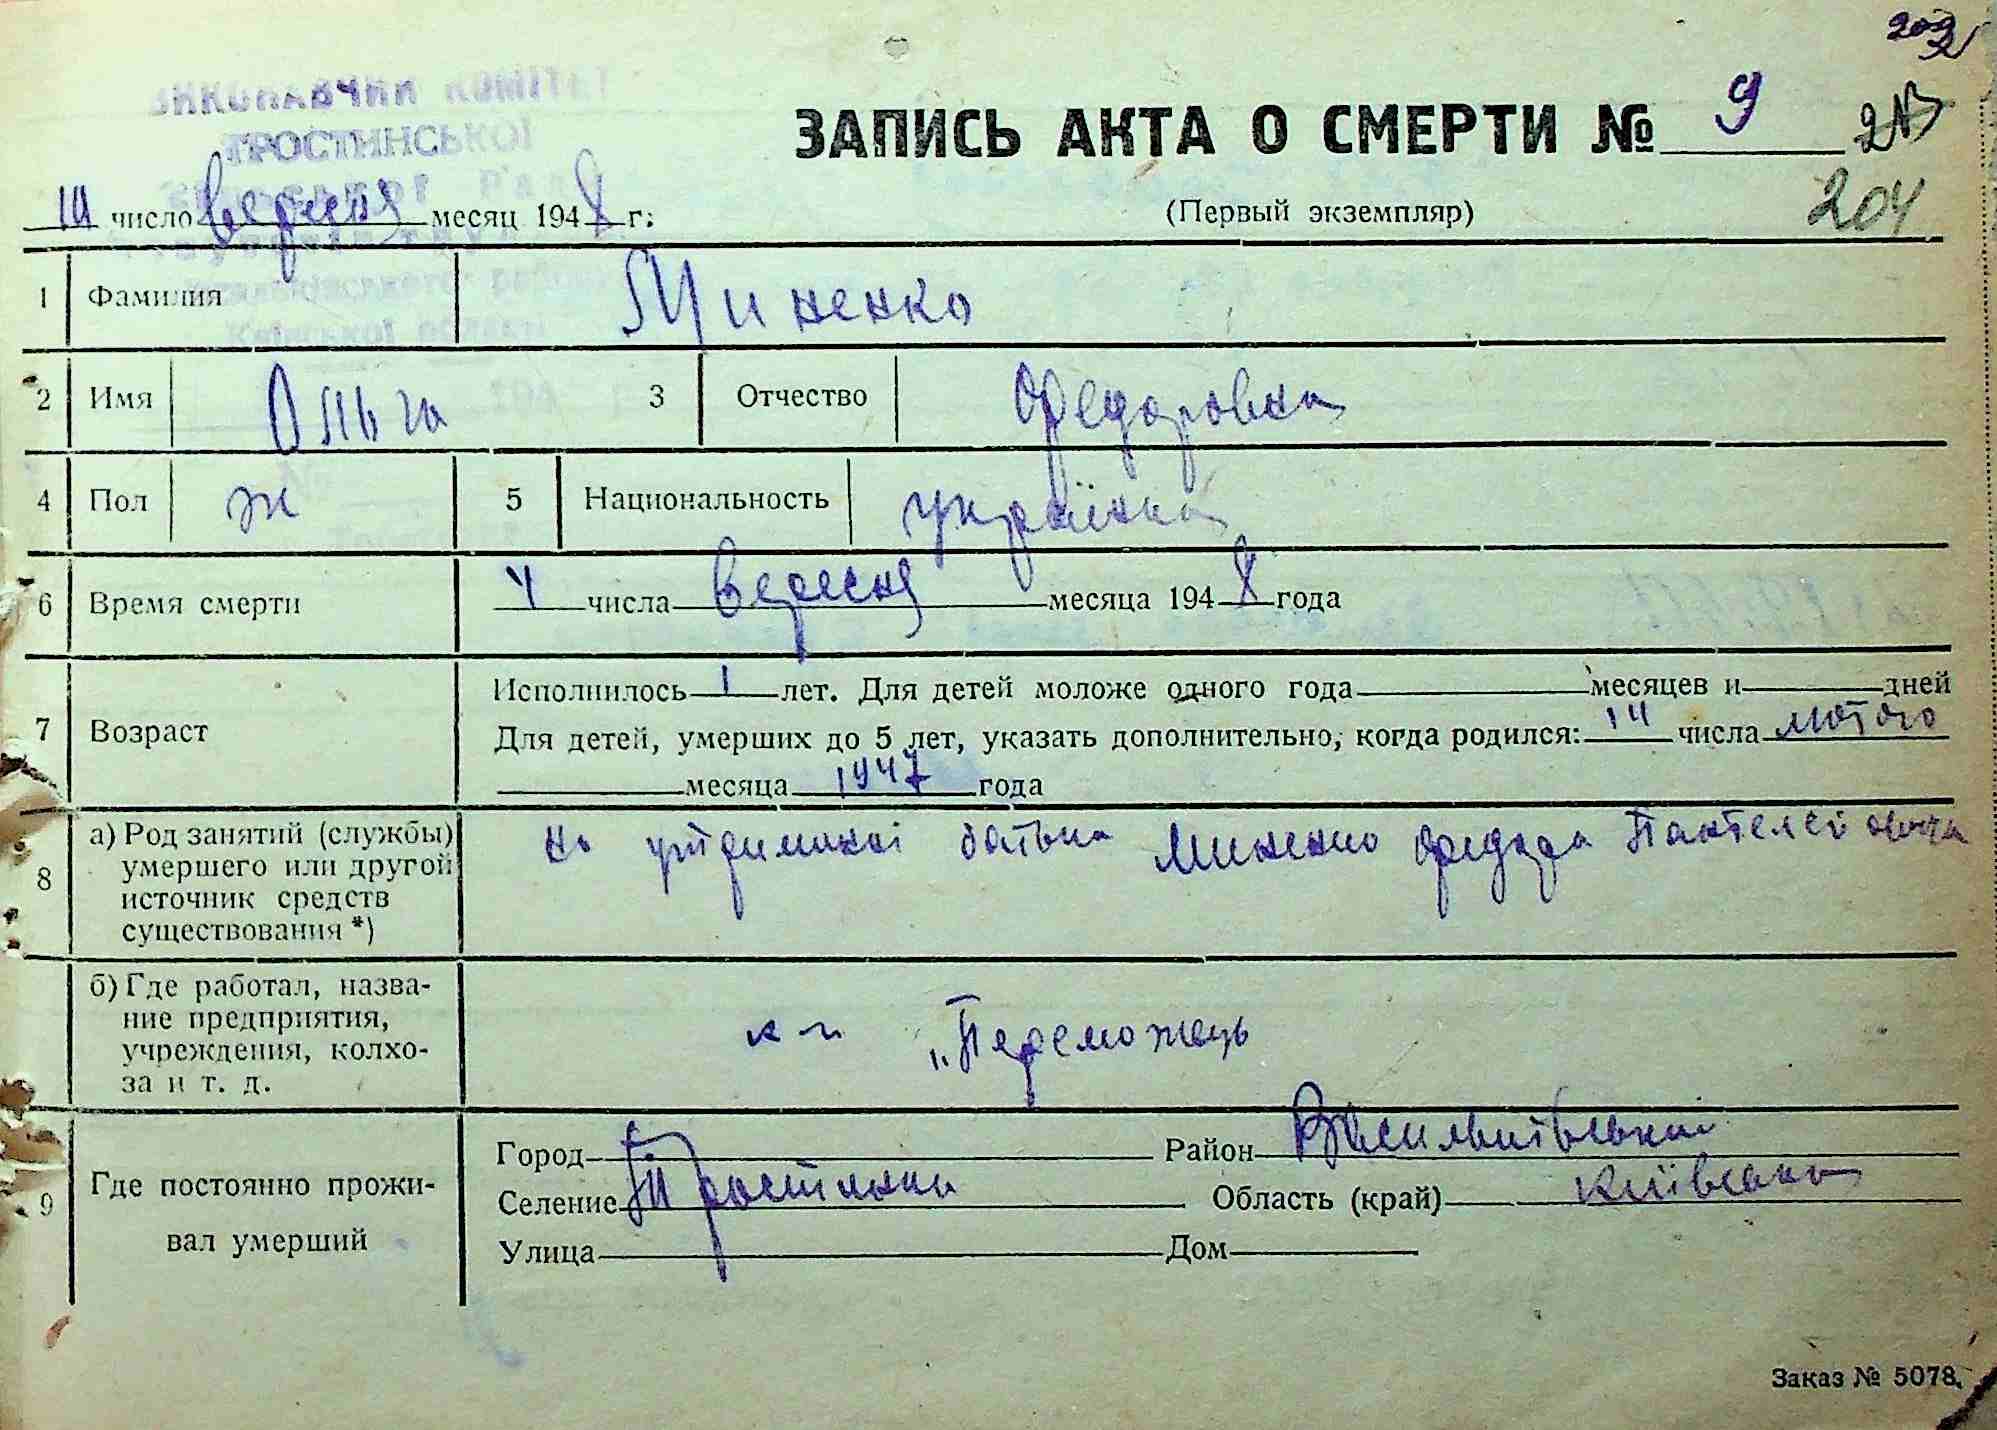 203
ВИКОНАВЧИЙ КОМІТЕТ
ТРОСТИНСЬКОЇ
ЗАПИСЬ АКТА О СМЕРТИ № 9
204
число вересня месяц 1948 г.
(Первый экземпляр)
1 Фамилия Миненко
Київської області
2 Имя Ольга 3 Отчество Федоровна
4 Пол ж 5 Национальность українка
6 Время смерти 4 числа вересня месяца 1948 года
7 Возраст
Исполнилось 1 лет. Для детей моложе одного года месяцев и дней
Для детей, умерших до 5 лет, указать дополнительно, когда родился: 14 числа лютого
месяца 1947 года
8 а) Род занятий (службы) умершего или другой источник средств существования *)
на утриманні батька Миненко Федора Пантелейовича
б) Где работал, назва-
ние предприятия,
учреждения, колхо-
за и т. д.
к-п „Переможець
9 Где постоянно прожи-
вал умерший
Город Район Васильківський
Селение Тростинка Область (край) Київська
Улица Дом
Заказ № 5078.